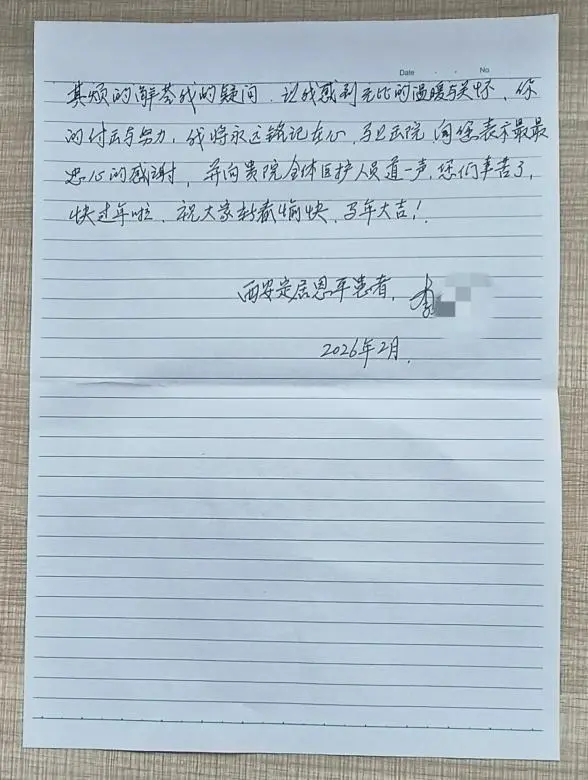 Date No
其烦的解答我的疑问，让我感到无比的温暖与关怀，你
的付出与努力，我将永远铭记在心，马上出院，向您表示最最
忠心的感谢，并向贵院全体医护人员道一声，您们辛苦了，
快过年啦，祝大家新春愉快，马年大吉！
西安定居恩平患者，李
2026年2月．